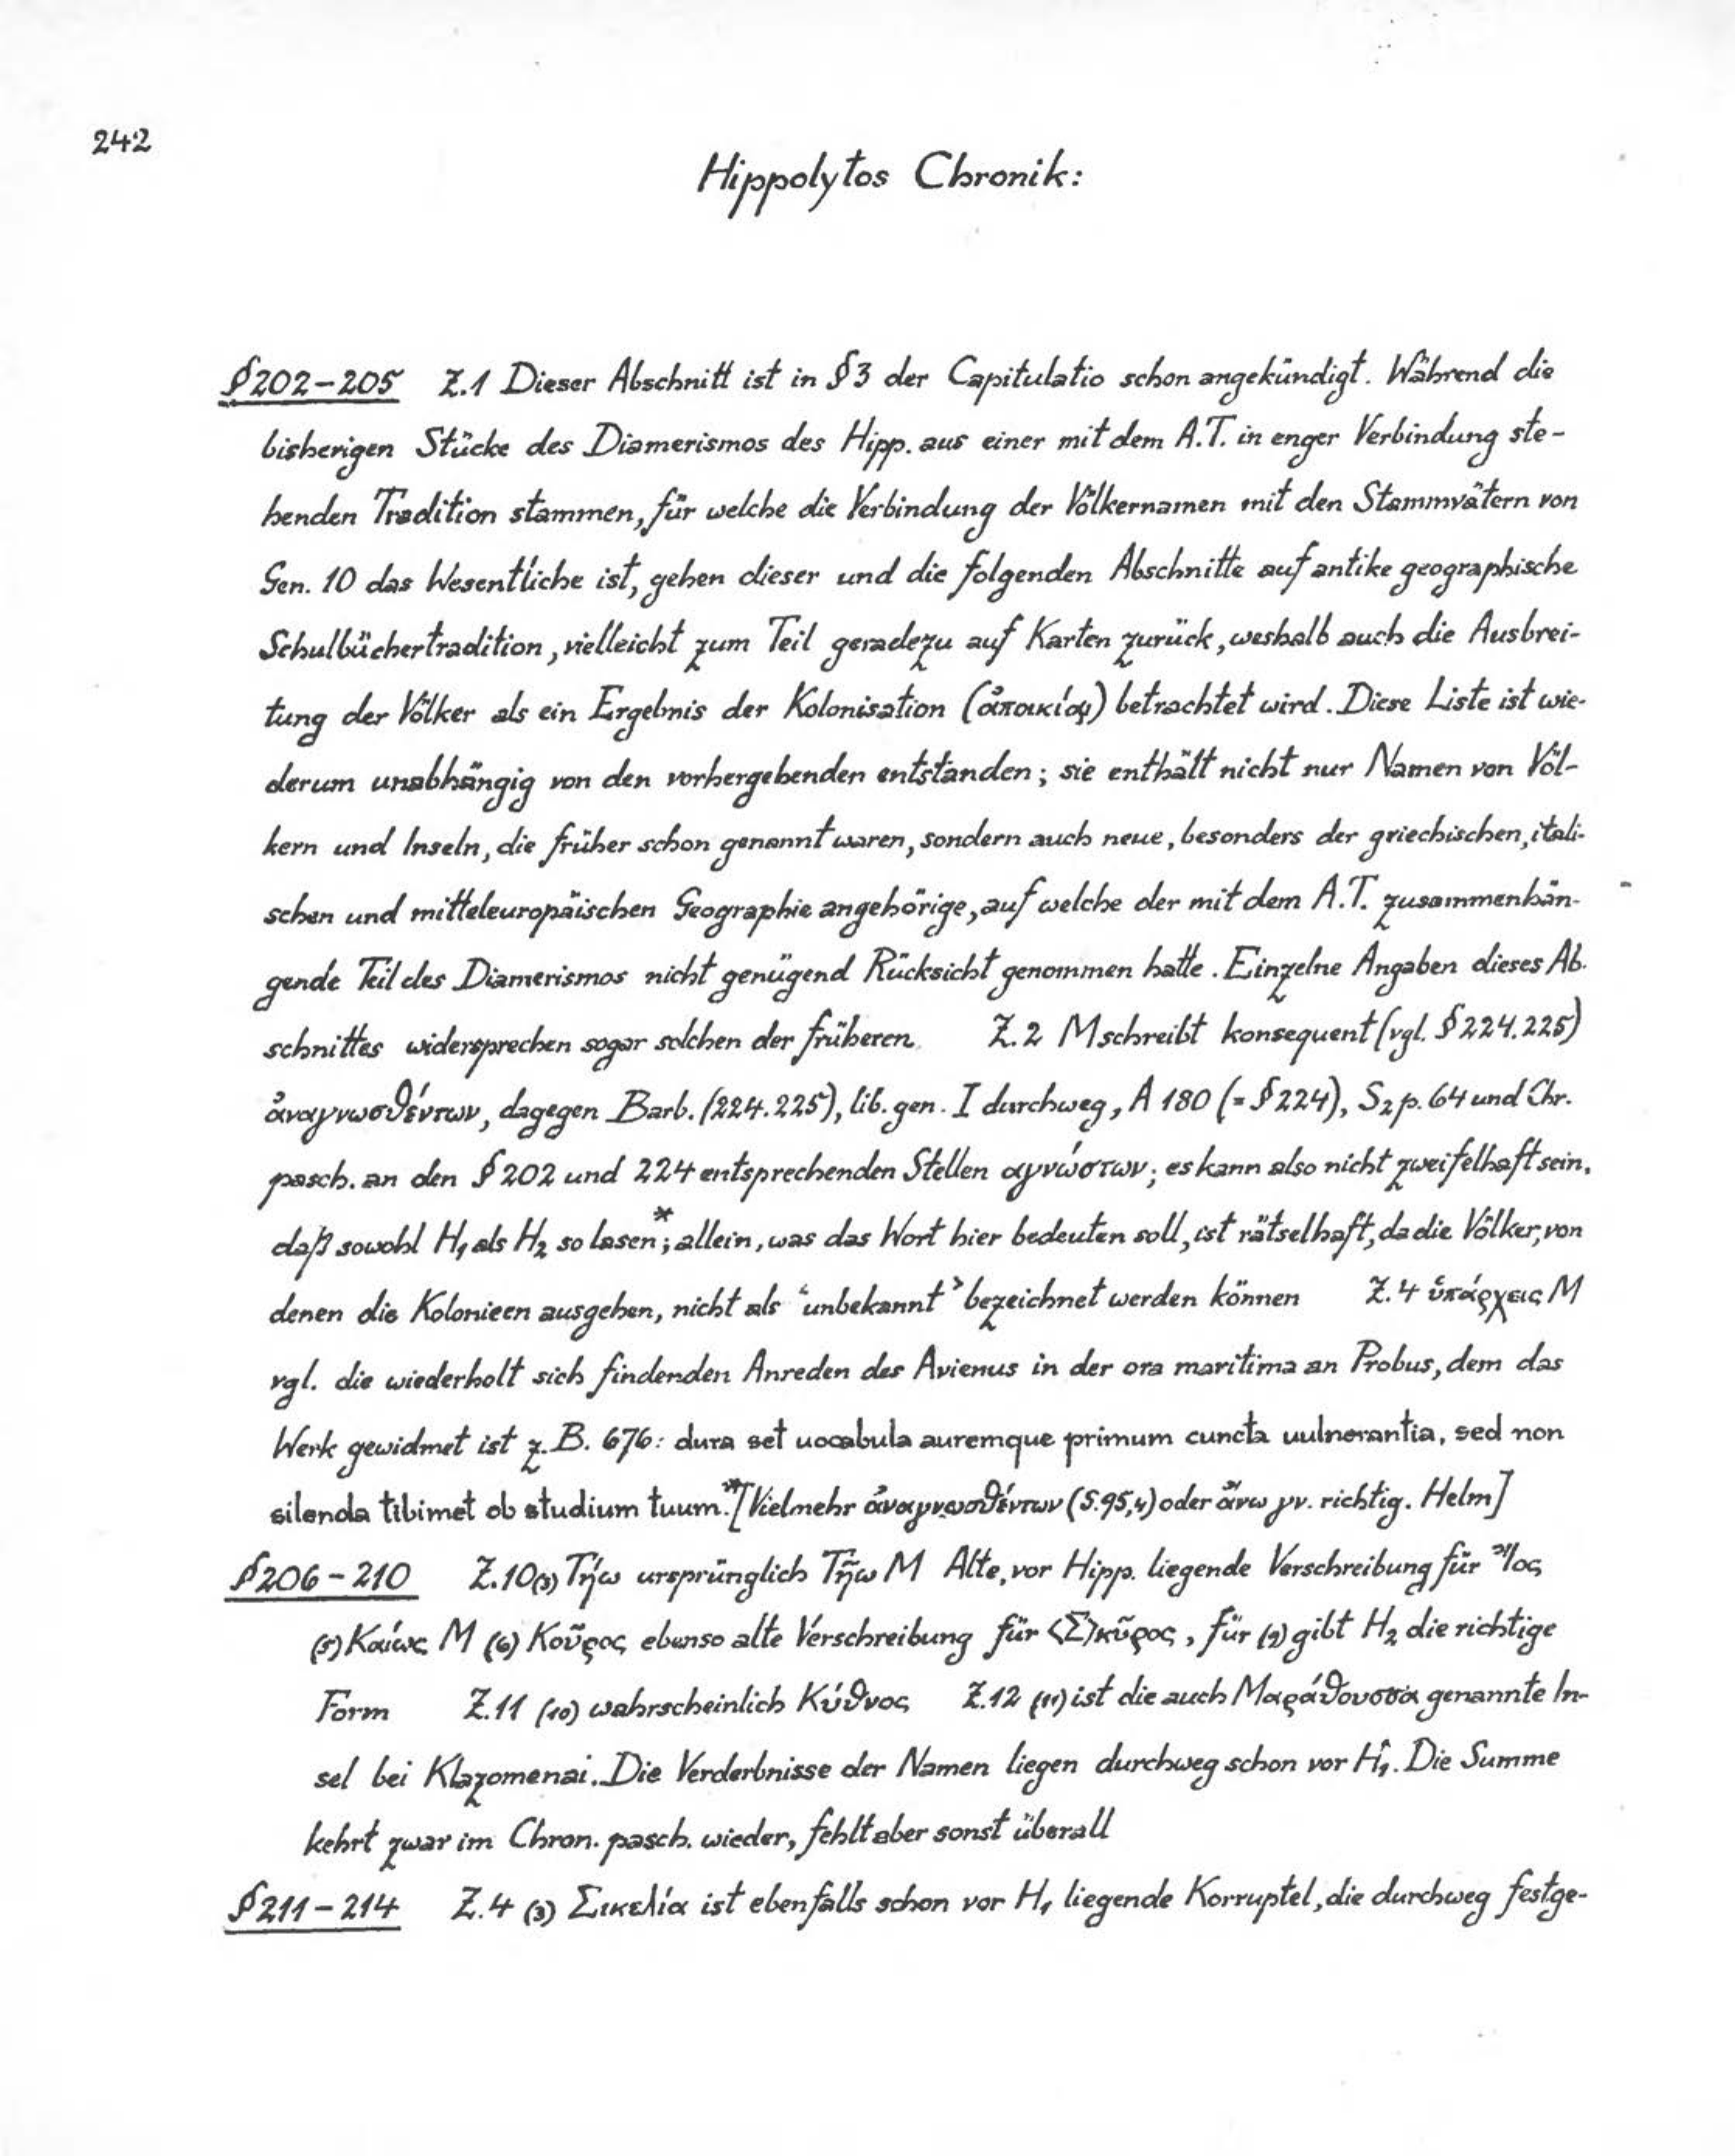 242
Hippolytos Chronik:
§202-205 Z.1 Dieser Abschnitt ist in §3 der Capitulatio schon angekündigt. Während die
bisherigen Stücke des Diamerismos des Hipp. aus einer mit dem A.T. in enger Verbindung ste-
henden Tradition stammen, für welche die Verbindung der Völkernamen mit den Stammvätern von
Gen. 10 das Wesentliche ist, gehen dieser und die folgenden Abschnitte auf antike geographische
Schulbüchertradition, vielleicht zum Teil geradezu auf Karten zurück, weshalb auch die Ausbrei-
tung der Völker als ein Ergebnis der Kolonisation (ἀποικίαι) betrachtet wird. Diese Liste ist wie-
derum unabhängig von den vorhergehenden entstanden; sie enthält nicht nur Namen von Völ-
kern und Inseln, die früher schon genannt waren, sondern auch neue, besonders der griechischen, itali-
schen und mitteleuropäischen Geographie angehörige, auf welche der mit dem A.T. zusammenhän-
gende Teil des Diamerismos nicht genügend Rücksicht genommen hatte. Einzelne Angaben dieses Ab-
schnittes widersprechen sogar solchen der früheren. Z.2 M schreibt konsequent (vgl. §224.225)
ἀναγνωσθέντων, dagegen Barb. (224.225), lib. gen. I durchweg, A 180 (= §224), S₂ p. 64 und Chr.
pasch. an den §202 und 224 entsprechenden Stellen αγνώστων; es kann also nicht zweifelhaft sein,
daß sowohl H₁ als H₂ so lasen*; allein, was das Wort hier bedeuten soll, ist rätselhaft, da die Völker, von
denen die Kolonieen ausgehen, nicht als ‘unbekannt’ bezeichnet werden können Z.4 ὑπάρχεις M
vgl. die wiederholt sich findenden Anreden des Avienus in der ora maritima an Probus, dem das
Werk gewidmet ist z.B. 676: dura set uocabula auremque primum cuncta uulnerantia, sed non
silenda tibimet ob studium tuum. *[Vielmehr ἀναγνωσθέντων (S.95,4) oder ἄνω γν. richtig. Helm]
§206-210 Z.10 (3) Τήω ursprünglich Τῆω M Alte, vor Hipp. liegende Verschreibung für Ἴος
(5) Καίως M (6) Κοῦρος ebenso alte Verschreibung für <Σ>κῦρος, für (9) gibt H₂ die richtige
Form Z.11 (10) wahrscheinlich Κύθνος Z.12 (11) ist die auch Μαράθουσσα genannte In-
sel bei Klazomenai. Die Verderbnisse der Namen liegen durchweg schon vor H₁. Die Summe
kehrt zwar im Chron. pasch. wieder, fehlt aber sonst überall
§211-214 Z.4 (3) Σικελία ist ebenfalls schon vor H₁ liegende Korruptel, die durchweg festge-